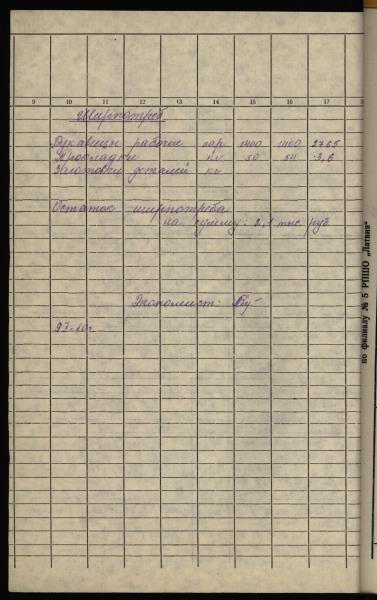 9 10 11 12 13 14 15 16 17
Ширпотреб
Рукавицы рабочие пар 1400 1400 2765
Прокладки кг 50 50 3,6
деталей кг
Остаток ширпотреба
на сумму: 2,1 тыс руб
Экономист:
по филиалу № 5 РПШО „Латвия"